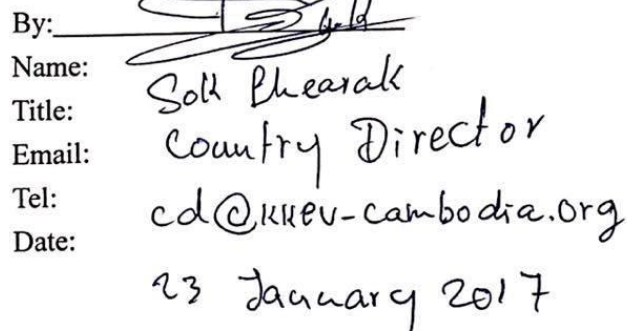 By:
Name: Sok Phearak
Title: Country Director
Email: cd@kkev-cambodia.org
Tel:
Date: 23 January 2017